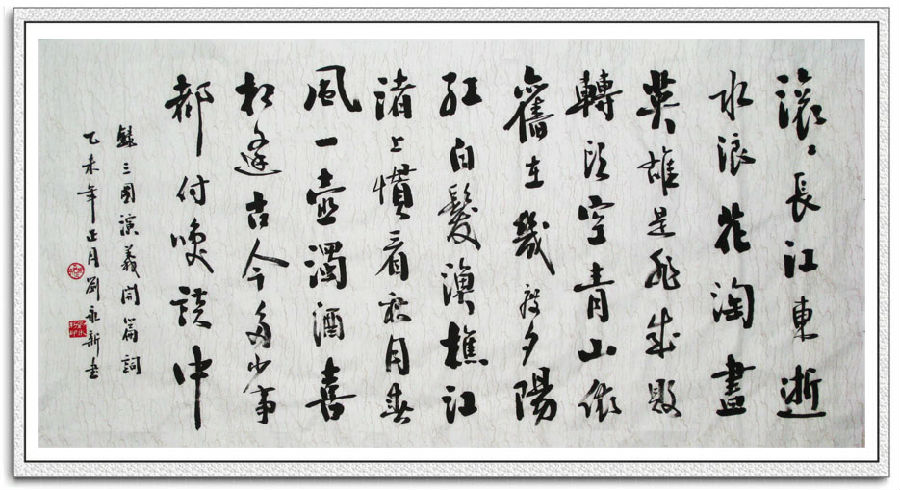 滚〻長江東逝
水浪花淘盡
英雄是非成敗
轉頭空青山依
舊在幾度夕陽
紅白髮漁樵江
渚上慣看秋月春
風一壺濁酒喜
相逢古今多少事
都付咲談中
錄三國演義開篇詞
乙未年正月劉永新書